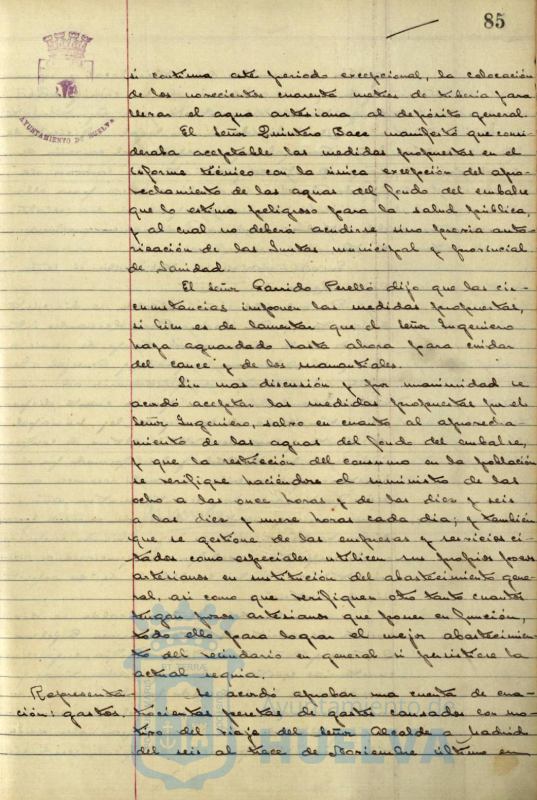 85
AYUNTAMIENTO DE HUELVA
si continua este periodo excepcional, la colocación
de los novecientos cuarenta metros de tubería para
llevar el agua artesiana al depósito general.
El Señor Quintero Baez manifestó que consi-
deraba aceptable las medidas propuestas en el
informe técnico con la única excepción del apro-
vechamiento de las aguas del fondo del embalse
que lo estima peligroso para la salud pública,
y al cual no deberá acudirse sino previa auto-
rización de las Juntas municipal y provincial
de Sanidad.
El Señor Garrido Perelló dijo que las cir-
cunstancias imponen las medidas propuestas,
si bien es de lamentar que el Señor Ingeniero
haya aguardado hasta ahora para cuidar
del cauce y de los manantiales.
Sin mas discusión y por unanimidad se
acordó aceptar las medidas propuestas por el
Señor Ingeniero, salvo en cuanto al aprovecha-
miento de las aguas del fondo del embalse,
y que la restricción del consumo en la población
se verifique haciéndose el suministro de las
ocho a las once horas y de las diez y seis
a las diez y nueve horas cada dia; y también
que se gestione de las empresas y servicios ci-
tados como especiales utilicen sus propios pozos
artesianos en sustitución del abastecimiento gene-
ral, asi como que verifiquen otro tanto cuantos
tengan pozos artesianos que poner en función,
todo ello para lograr el mejor abastecimien-
to del vecindario en general si persistiere la
actual sequia.
Representa-
ción: gastos.
Se acordó aprobar una cuenta de cua-
trocientas pesetas de gastos causados con mo-
tivo del viaje del Señor Alcalde a Madrid
del seis al trece de Noviembre último en
Ayuntamiento de
HUELVA